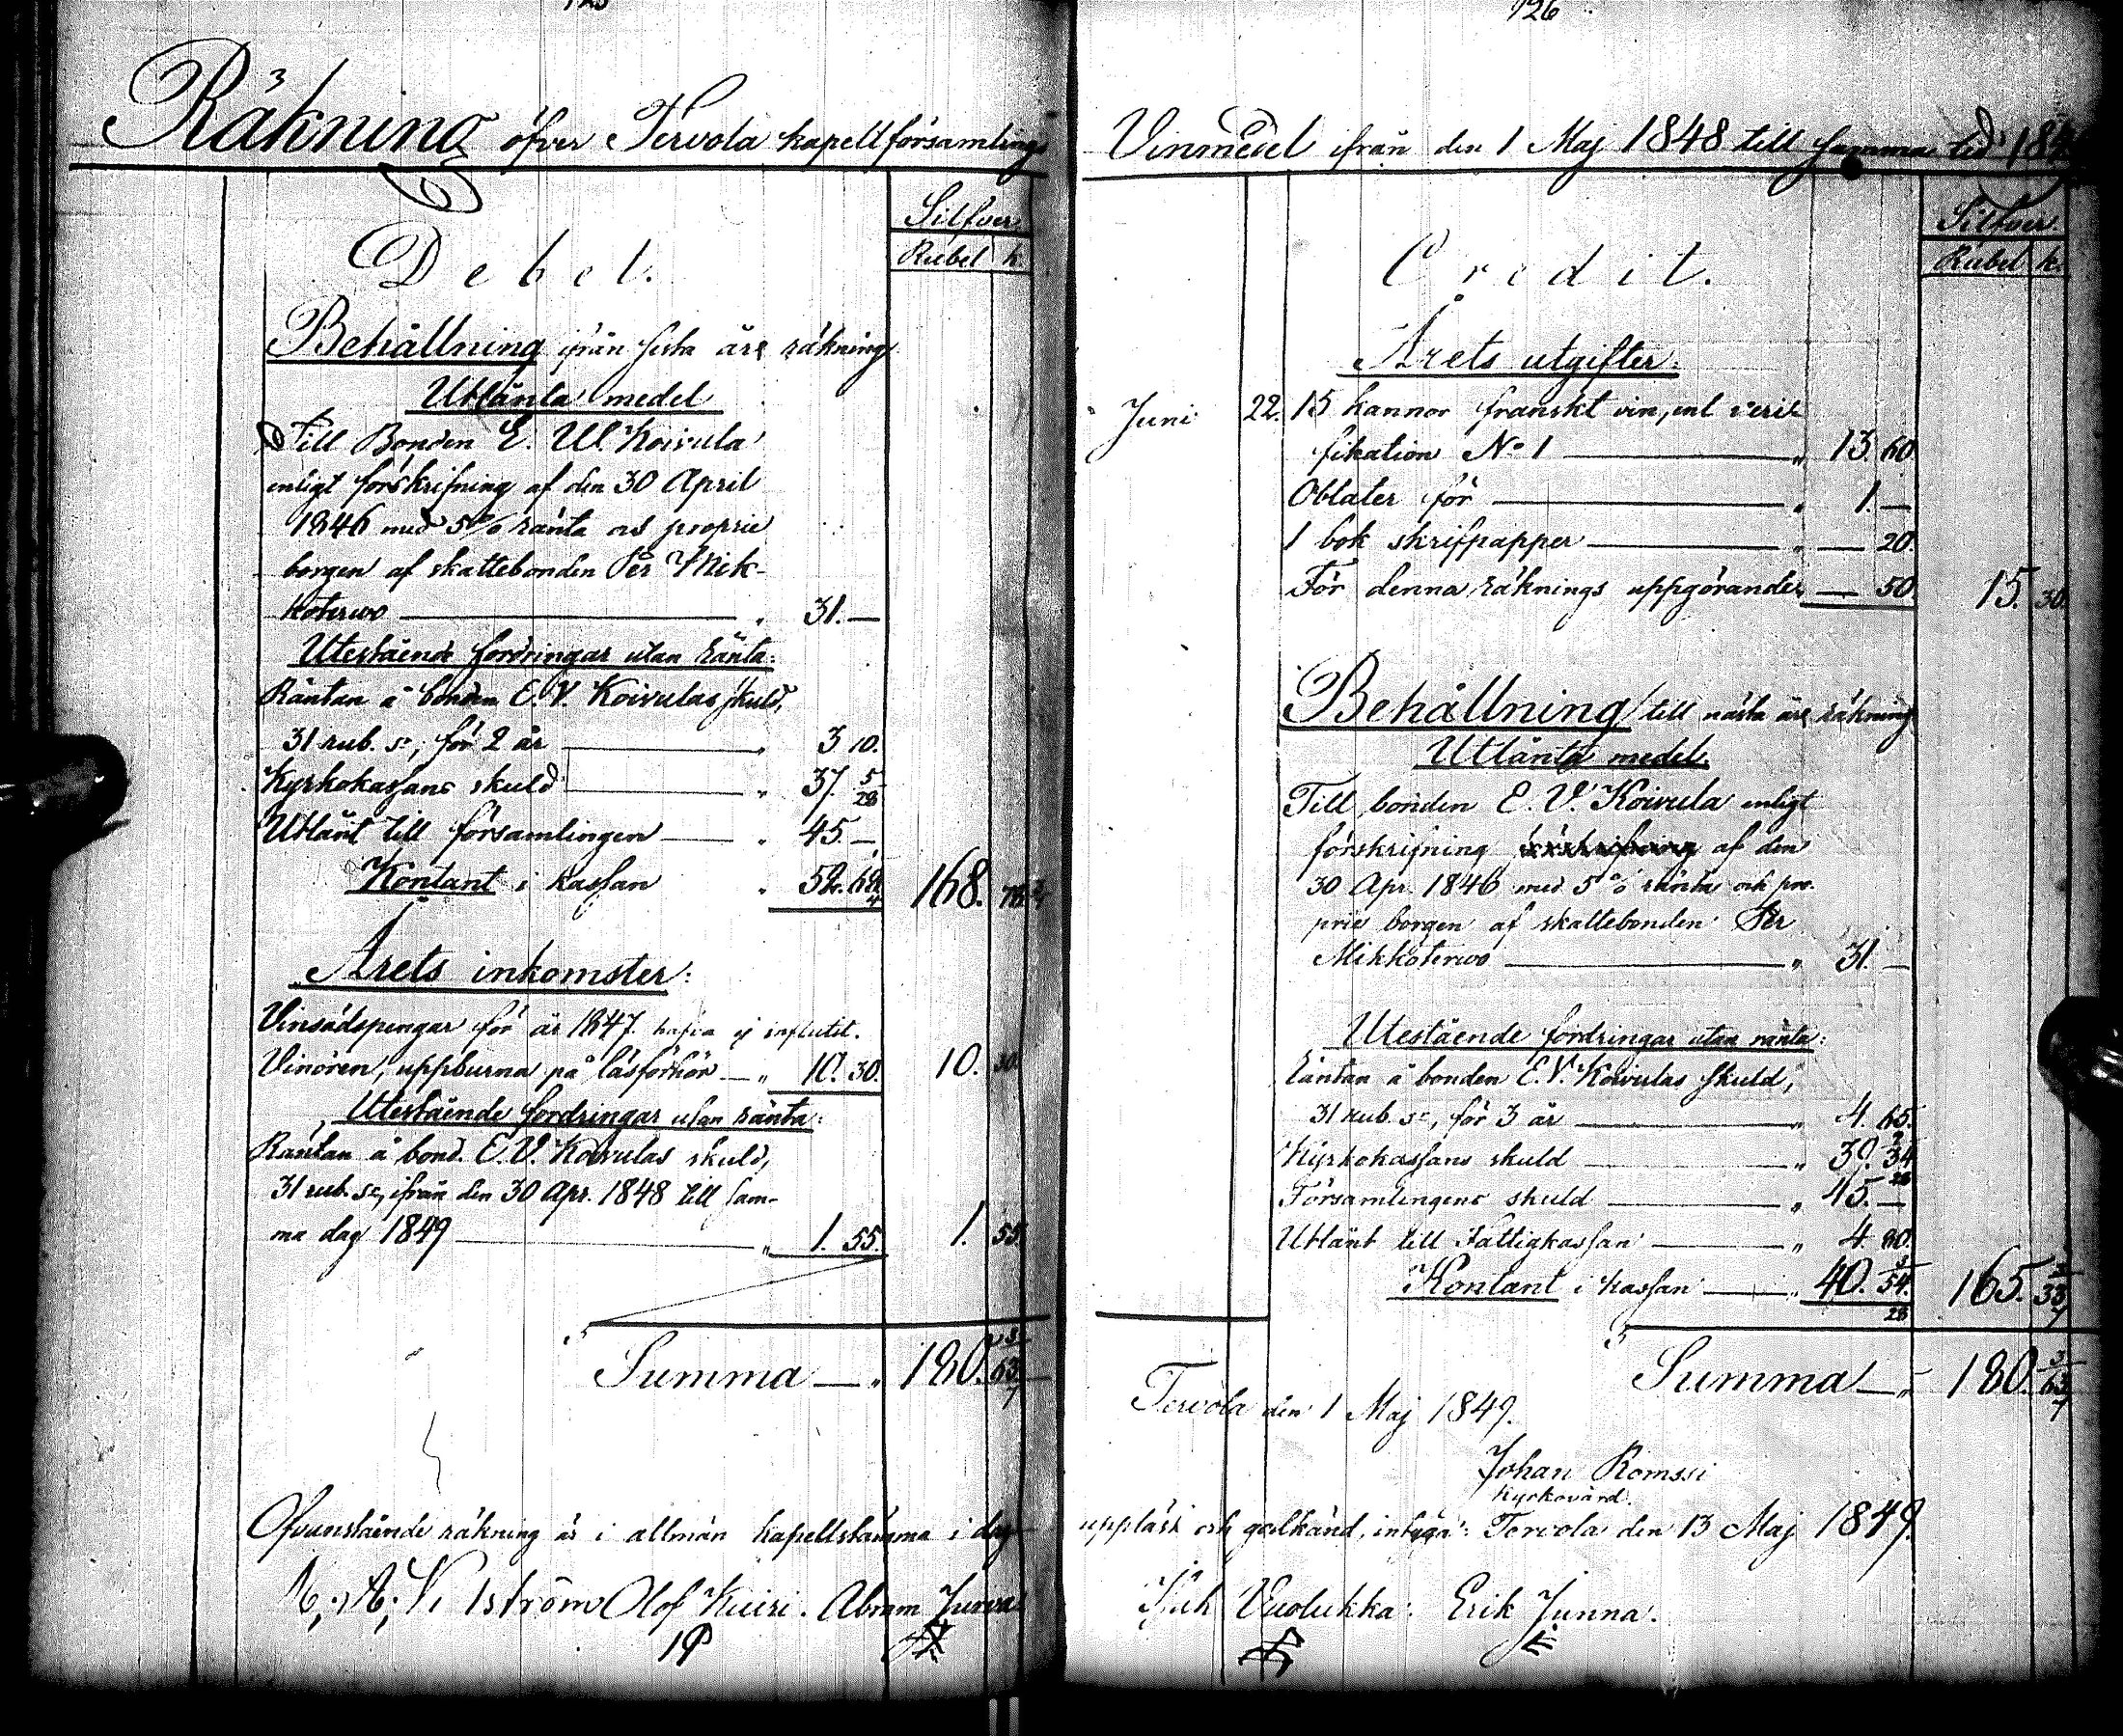 125
Räkning öfver Tervola kapellförsamlings
Silfver.
Rubel k.
Debet.
Behållning ifrån sista års räkning
Utlånta medel
Till Bonden E. W. Koivula
enligt förskrifning af den 30 April
1846 med 5% ränta och proprie
borgen af skattebonden Per Mik-
köterwo " 31. —
Utestående fordringar utan ränta:
Räntan å bonden E. V. Koivulas skuld,
31 rub. Sr, för 2 år " 3 10.
Kyrkokassans skuld " 37. 5/28
Utlånt till församlingen " 45. —
Kontant i kassan " 52.
168.
Årets inkomster:
Vinsädspengar för år 1847 hafva ej influtit.
Vinören, uppburna på läsförhör — " 10. 30. 10. 30.
Utestående fordringar utan ränta:
Räntan å bond. E. V. Koivulas skuld,
31 rub. Sr, ifrån den 30 Apr. 1848 till sam-
ma dag 1849 " 1. 55. 1. 55
Summa — " 180. 63 3/7
Ofvanstående räkning är i allmän kapellstämma i dag
Olof Kuisi. Abram Jurva
126
Vinmedel ifrån den 1 Maj 1848 till samma tid
Silfver.
Rubel k.
Credit.
Årets utgifter.
Juni 22. 15 kannor franskt vin, enl veri-
fikation No 1 " 13. 60
Oblater för " 1. —
1 bok skrifpapper " — 20.
För denna räknings uppgörande — 50 15. 30.
Behållning till nästa års räkning
Utlånta medel.
Till bonden E. V. Koivula enligt
förskrifning förskrifning af den
30 Apr. 1846 med 5% ränta och pro-
prie borgen af skattebonden Per
Mikköterwo " 31. —
Utestående fordringar utan ränta:
Räntan å bonden E. V. Koivulas skuld,
31 rub. Sr, för 3 år " 4. 65.
Kyrkokassans skuld " 39. 34
Församlingens skuld " 45. —
Utlånt till Fattigkassan " 4. 80.
Kontant i kassan " 40. 54. 165.
Summa — " 180. 63 3/7
Tervola den 1 Maj 1849.
Johan Romssi
Kyrkovärd.
uppläst och godkänd, intyga: Tervola den 13 Maj 1849.
Vuolukka. Erik Junna.